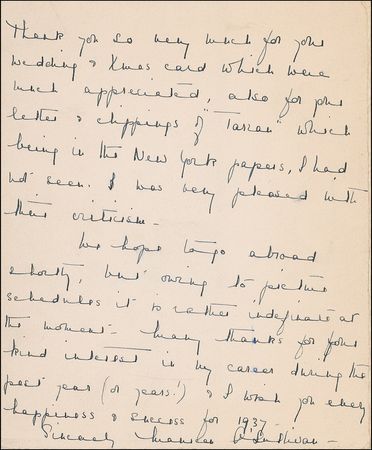 Thank you so very much for your
wedding & Xmas card which were
much appreciated, also for your
letter & clippings of "Tarzan" which
being in the New York papers, I had
not seen. I was very pleased with
their criticism -
We hope to go abroad
shortly, but owing to picture
schedules it is rather indefinate at
the moment - Many thanks for your
kind interest in my career during the
past year (or years!) & I wish you every
happiness & success for 1937 -
Sincerely Maureen O'Sullivan -